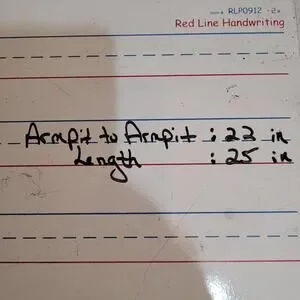 Item# RLP0912 -2x
Red Line Handwriting
Armpit to Armpit : 23 in
Length : 25 in